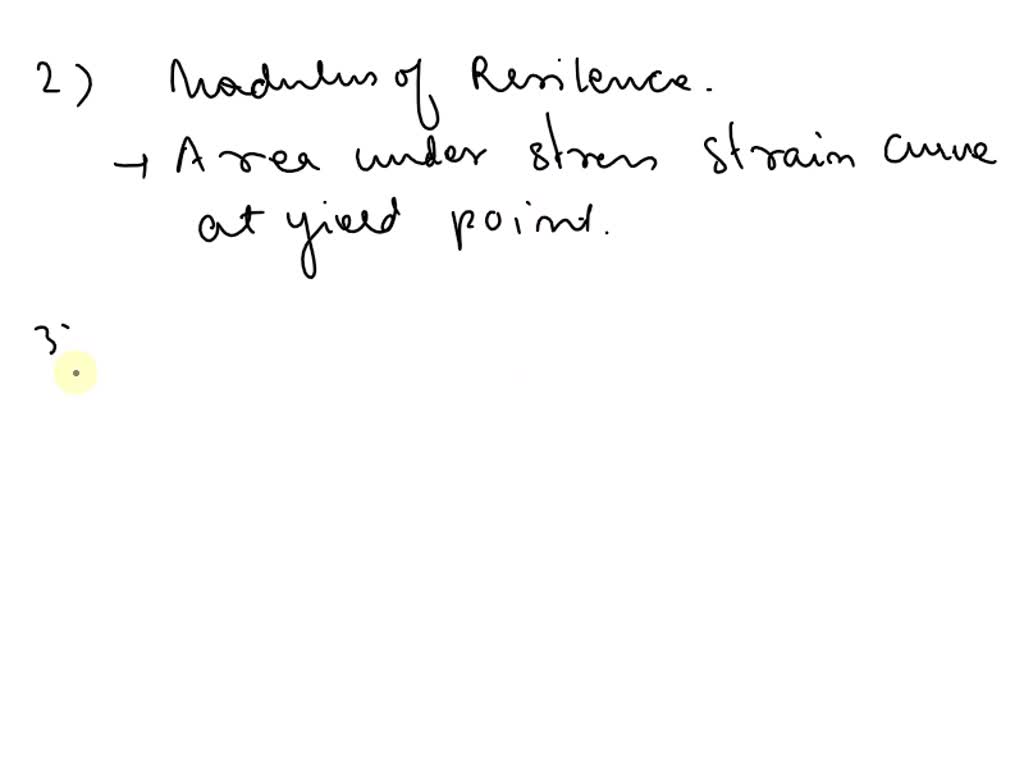 2) Modulus of Resilence.
→ Area under stress strain curve
at yield point.
3